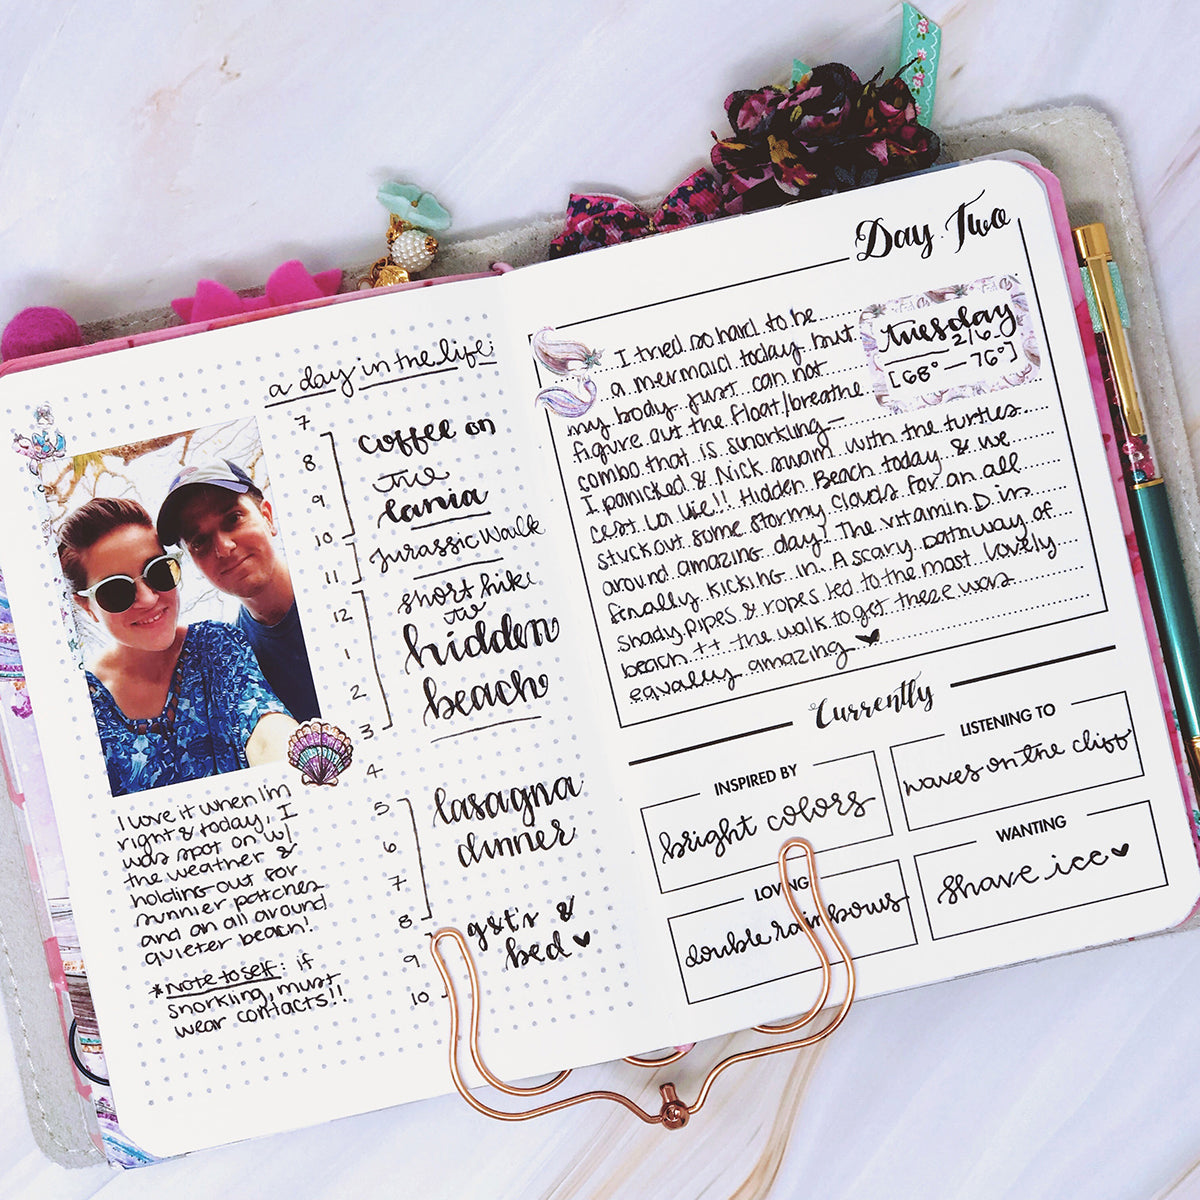 a day in the life:
7
8
9
10
11
12
1
2
3
4
5
6
7
8
9
10
coffee on
the
lania
Jurassic Walk
short hike
to
hidden
beach
lasagna
dinner
g&t's &
bed
I love it when I'm
right & today, I
was spot on w/
the weather &
holding out for
sunnier patches
and an all around
quieter beach!
*Note to self: if
snorkling, must
wear contacts!!
Day Two
tuesday
2/6
[68° — 76°]
I tried so hard to be
a mermaid today but
my body just can not
figure out the float/breathe
combo that is snorkling —
I panicked & Nick swam with the turtles
cest La Vie!! Hidden Beach today & we
stuck out some stormy clouds for an all
around amazing day! The vitamin D is
finally kicking in. A scary pathway of
shady pipes & ropes led to the most lovely
beach ++ the walk to get there was
equally amazing
Currently
INSPIRED BY
bright colors
LISTENING TO
waves on the cliff
LOVING
double rainbows
WANTING
Shave ice